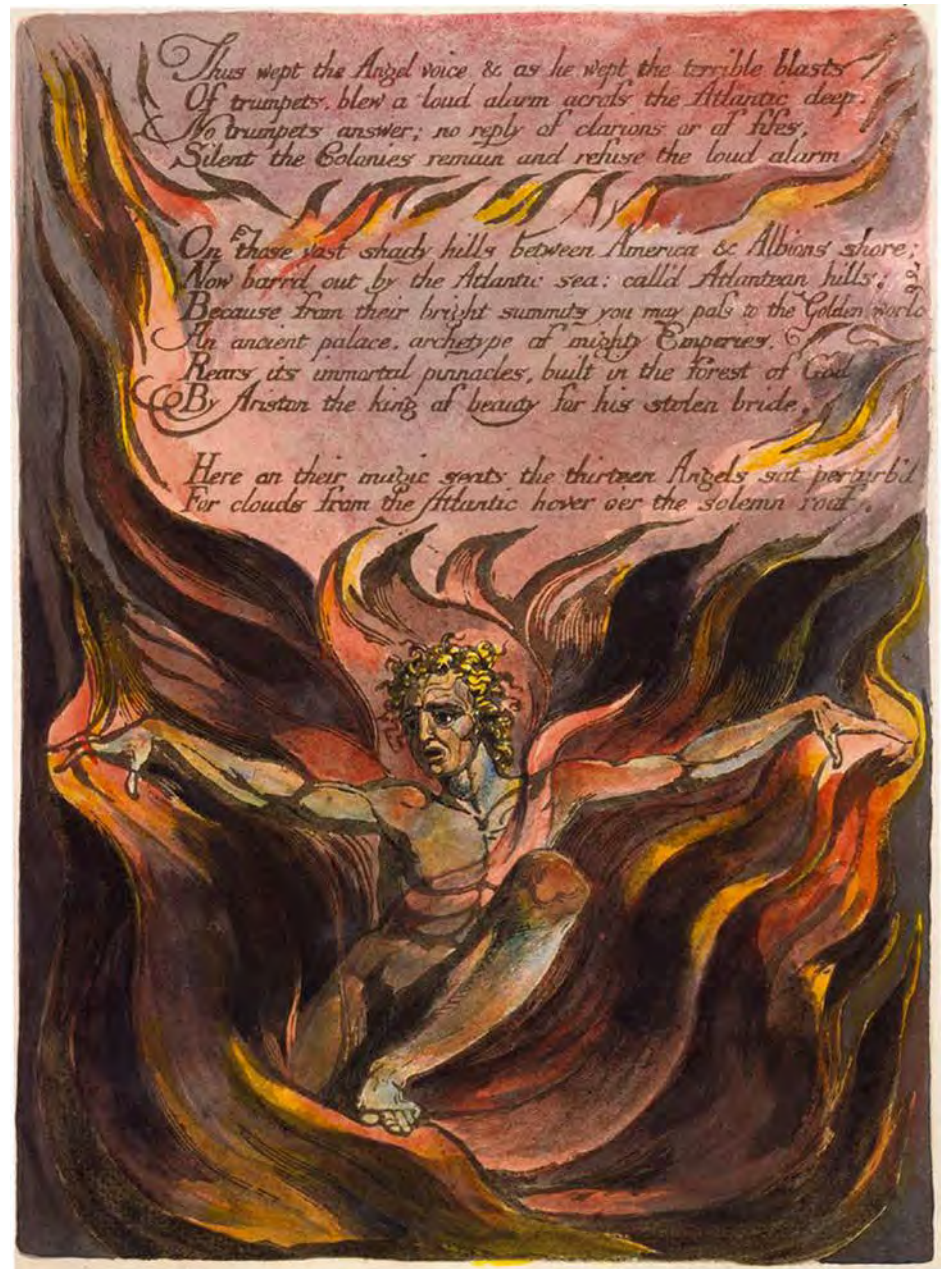 Thus wept the Angel voice & as he wept the terrible blasts
Of trumpets, blew a loud alarm across the Atlantic deep.
No trumpets answer; no reply of clarions or of fifes,
Silent the Colonies remain and refuse the loud alarm
On those vast shady hills between America & Albions shore;
Now barr'd out by the Atlantic sea: call'd Atlantean hills:
Because from their bright summits you may pass to the Golden world
An ancient palace, archetype of mighty Emperies,
Rears its immortal pinnacles, built in the forest of God
By Ariston the king of beauty for his stolen bride,
Here on their magic seats the thirteen Angels sat perturb'd
For clouds from the Atlantic hover oer the solemn roof.